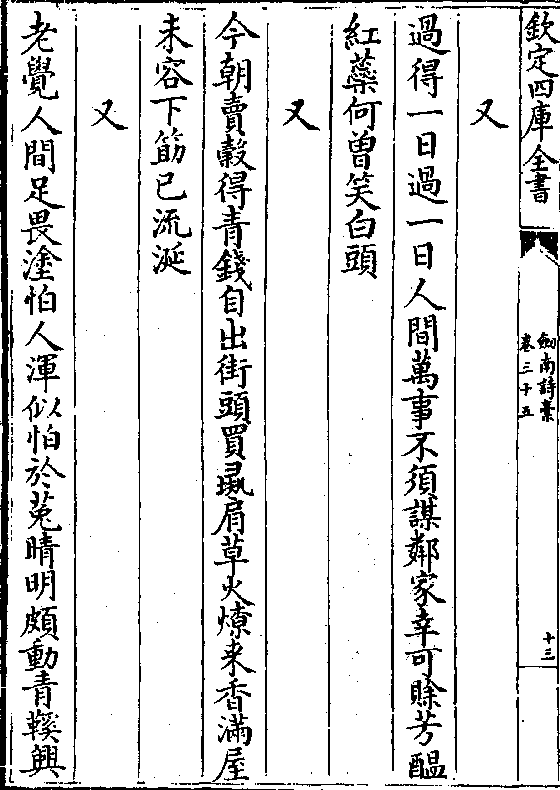 欽定四庫全書
劒南詩藁
卷三十五
十三
又
過得一日過一日人間萬事不須謀鄰家幸可賒芳醖
紅蘂何曽笑白頭
又
今朝賣穀得青錢自出街頭買彘肩草火燎来香滿屋
未容下筯已流涎
又
老覺人間足畏塗怕人渾似怕於菟晴明頗動青鞵興